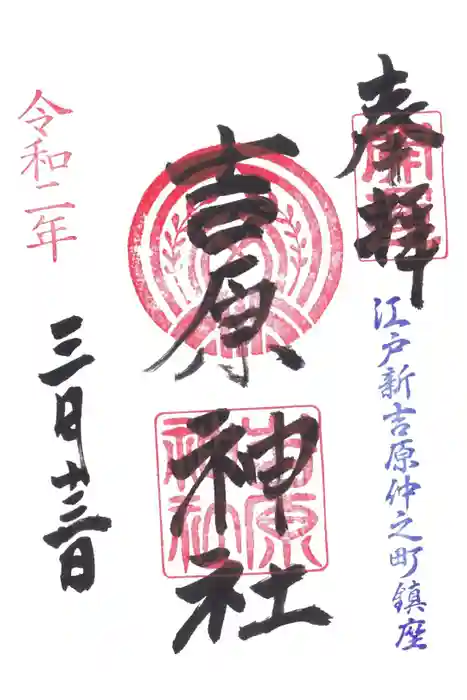 奉拝
江戸新吉原仲之町鎮座
吉原神社
令和二年
三月十三日